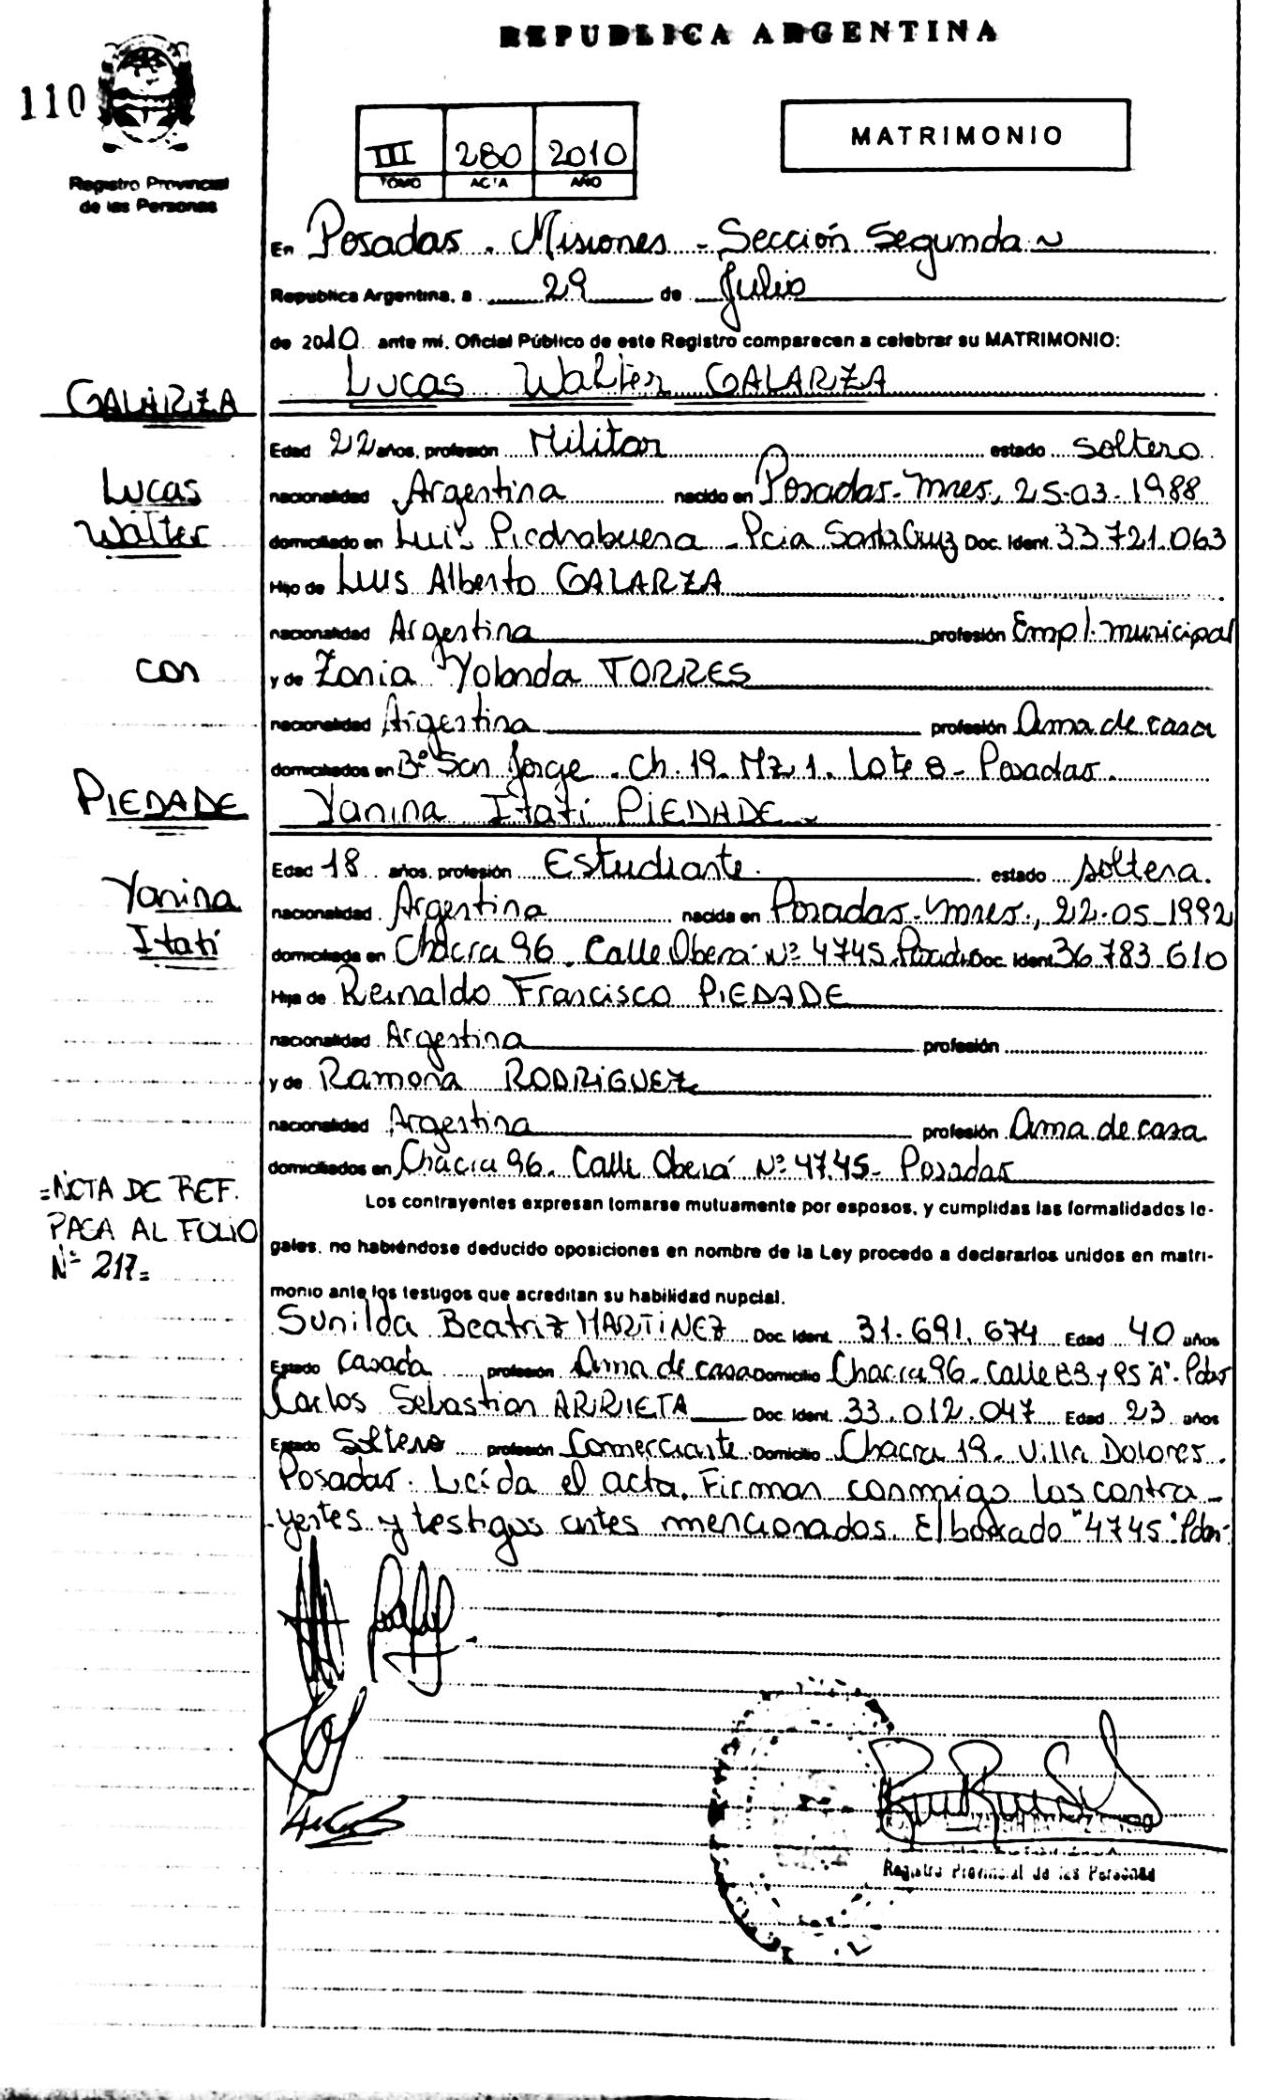 REPUBLICA ARGENTINA
110
Registro Provincial
de las Personas
III 280 2010
TOMO ACTA AÑO
MATRIMONIO
En Posadas . Misiones - Sección Segunda
República Argentina, a 29 de Julio
de 2010 ante mí, Oficial Público de este Registro comparecen a celebrar su MATRIMONIO:
Lucas Walter GALARZA
GALARZA
Lucas
Walter
con
PIEDADE
Yanina
Itatí
=NOTA DE REF.
PASA AL FOLIO
Nº 217=
Edad 22 años, profesión Militar estado soltero
nacionalidad Argentina nacido en Posadas - Mnes., 25-03-1988
domiciliado en Luis Piedrabuena - Pcia Santa Cruz Doc. Ident. 33.721.063
Hijo de Luis Alberto GALARZA
nacionalidad Argentina profesión Empl. municipal
y de Zonia Yolanda TORRES
nacionalidad Argentina profesión Ama de casa
domiciliados en Bº San Jorge . Ch. 19. Mz 1. Lote 8 - Posadas.
Yanina Itatí PIEDADE
Edad 18 años, profesión Estudiante. estado soltera.
nacionalidad Argentina nacida en Posadas - Mnes., 22-05-1992
domiciliada en Chacra 96 . Calle Oberá Nº 4745. Doc. Ident. 36.783.610
Hija de Reinaldo Francisco PIEDADE
nacionalidad Argentina profesión
y de Ramona RODRIGUEZ
nacionalidad Argentina profesión Ama de casa
domiciliados en Chacra 96. Calle Oberá Nº 4745 - Posadas
Los contrayentes expresan tomarse mutuamente por esposos, y cumplidas las formalidades le-
gales, no habiéndose deducido oposiciones en nombre de la Ley procedo a declararlos unidos en matri-
monio ante los testigos que acreditan su habilidad nupcial.
Sunilda Beatriz MARTINEZ Doc. Ident. 31.691.674 Edad 40 años
Estado Casada profesión Ama de casa Domicilio Chacra 96 - Calle 83 y 95 "A". Pdas
Carlos Sebastian ARRIETA Doc. Ident. 33.012.047 Edad 23 años
Estado Soltero profesión Comerciante Domicilio Chacra 19. Villa Dolores.
Posadas. Leída el acta, Firman conmigo los contra-
yentes y testigos antes mencionados. El borrado "4745" Pdas-
Registro Provincial de las Personas